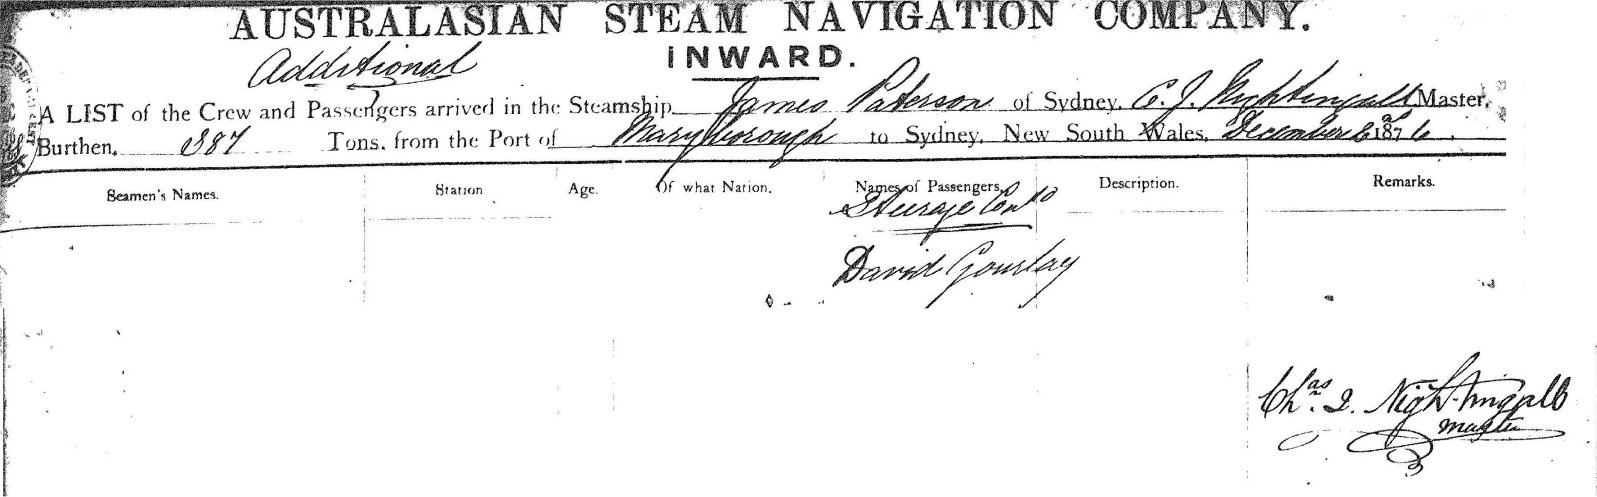 AUSTRALASIAN STEAM NAVIGATION COMPANY.
INWARD.
Additional
A LIST of the Crew and Passengers arrived in the Steamship James Paterson of Sydney, C. J. Nightingall Master,
Burthen, 387 Tons, from the Port of Maryborough to Sydney, New South Wales, December 6 1876.
Seamen's Names. Station Age. Of what Nation. Names of Passengers. Description. Remarks.
Steerage Contd
David Gourlay
Chas. J. Nightingall
Master